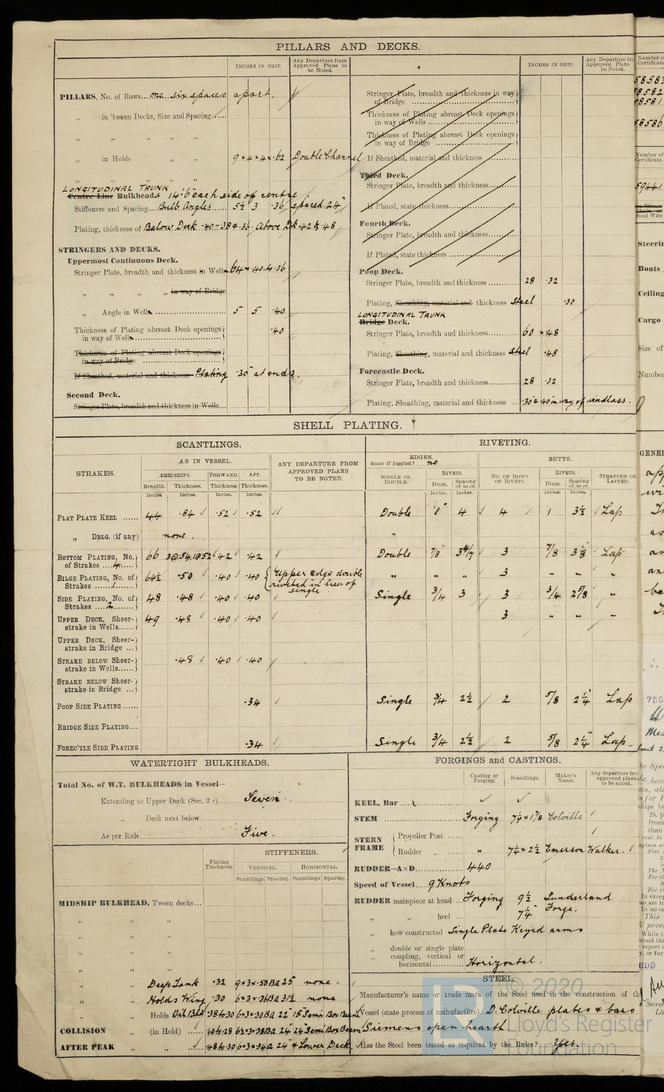 PILLARS AND DECKS.
INCHES IN SHIP.
Any Departure from Approved Plans to be Noted.
PILLARS, No. of Rows... one six spaces apart.
„ in 'tween Decks, Size and Spacing
„ „ „ „
„ in Holds „ „ 9×4×4×.62 Double Channel
„ „ „ „
LONGITUDINAL TRUNK
Centre Line Bulkheads 14'6" each side of centre
Stiffeners and Spacing... Bulb Angles 5½ 3 .36 spaced 24"
Plating, thickness of Below Deck .40-.38&.36. Above Dk .42 & .48
STRINGERS AND DECKS.
Uppermost Continuous Deck.
Stringer Plate, breadth and thickness in Wells 64× .40 to .36
„ „ „ „ in way of Bridge
„ Angle in Wells 5 5 .40
Thickness of Plating abreast Deck openings in way of Wells .40
Thickness of Plating abreast Deck openings in way of Bridge
If Sheathed, material and thickness Plating .30" at ends.
Second Deck.
Stringer Plate, breadth and thickness in Wells
INCHES IN SHIP.
Any Departure from Approved Plans to be Noted.
Stringer Plate, breadth and thickness in way of Bridge
Thickness of Plating abreast Deck openings in way of Wells
Thickness of Plating abreast Deck openings in way of Bridge
If Sheathed, material and thickness
Third Deck.
Stringer Plate, breadth and thickness
If Plated, state thickness
Fourth Deck.
Stringer Plate, breadth and thickness
If Plated, state thickness
Poop Deck.
Stringer Plate, breadth and thickness 28 .32
Plating, Sheathing, material and thickness Steel .30
LONGITUDINAL TRUNK
Bridge Deck.
Stringer Plate, breadth and thickness 60 × .48
Plating, Sheathing, material and thickness Steel .48
Forecastle Deck.
Stringer Plate, breadth and thickness 28 .32
Plating, Sheathing, material and thickness .30 & .40 in way of windlass.
SHELL PLATING.
SCANTLINGS.
RIVETING.
STRAKES.
AS IN VESSEL.
AMIDSHIPS. FORWARD. AFT.
Breadth. Thickness. Thickness. Thickness.
Inches Inches. Inches Inches
ANY DEPARTURE FROM APPROVED PLANS TO BE NOTED.
EDGES.
State if Joggled? no
SINGLE OR DOUBLE.
RIVETS.
Diam. Spacing cr. to cr.
Inches. Inches
BUTTS.
NO. OF ROWS OF RIVETS.
RIVETS.
Diam. Spacing cr. to cr.
Inches. Inches
STRAPPED OR LAPPED.
FLAT PLATE KEEL 44 .84 .52 .52 Double 1" 4 4 1 3½ Lap
„ DBLG. (if any) none. „
BOTTOM PLATING, No. of Strakes 4 66 .42 .42 Double 7/8" 3 7/8 Lap
BILGE PLATING, No. of Strakes 64½ .50 .40 .40 Upper edge double riveted in lieu of single „ „ „ 3 „ „ „
SIDE PLATING, No. of Strakes 2 48 .48 .40 .40 Single 3/4 3 3 3/4 2 5/8 „
UPPER DECK, Sheerstrake in Wells 49 .48 .40 .40 3 „ „ „
UPPER DECK, Sheerstrake in Bridge
STRAKE BELOW Sheerstrake in Wells .48 .40 .40
STRAKE BELOW Sheerstrake in Bridge
POOP SIDE PLATING .34 Single 3/4 2½ 2 5/8 2¼ Lap
BRIDGE SIDE PLATING
FOREC'TLE SIDE PLATING .34 Single 3/4 2½ 2 5/8 2¼ Lap
WATERTIGHT BULKHEADS.
Total No. of W.T. BULKHEADS in Vessel—
Extending to Upper Deck (Sec. 3 c) Seven.
„ Deck next below
As per Rule Five.
STIFFENERS.
Plating Thickness.
VERTICAL. HORIZONTAL.
Scantlings. Spacing. Scantlings. Spacing.
MIDSHIP BULKHEAD, 'Tween decks
„ „
„ „
„ „
„ „
Deep Tank .32 none.
Holds Wing .30 none
Holds
COLLISION „ (in Hold)
AFTER PEAK „ „ & Lower Deck
FORGINGS and CASTINGS.
Casting or Forging. Scantlings. Maker's Name. Any departure from approved plans to be noted.
KEEL, Bar
STEM Forging 7¼ × 1 7/8 Colville
STERN FRAME
Propeller Post
Rudder „ „ 7¼ × 2½ Emerson Walker.
RUDDER—A×D 440
Speed of Vessel 9 Knots
RUDDER mainpiece at head Forging 9½ Sunderland
„ „ heel 7¼ Forge.
„ how constructed Single Plate Keyed arms
„ double or single plate
„ coupling, vertical or horizontal Horizontal.
STEEL.
Manufacturer's name or trade mark of the Steel used in the construction of the
Vessel (state process of manufacture) D. Colville plates & bars
Siemens open hearth
Has the Steel been tested as required by the Rules? Yes.
© 2020
LR
Lloyd's Register
Foundation